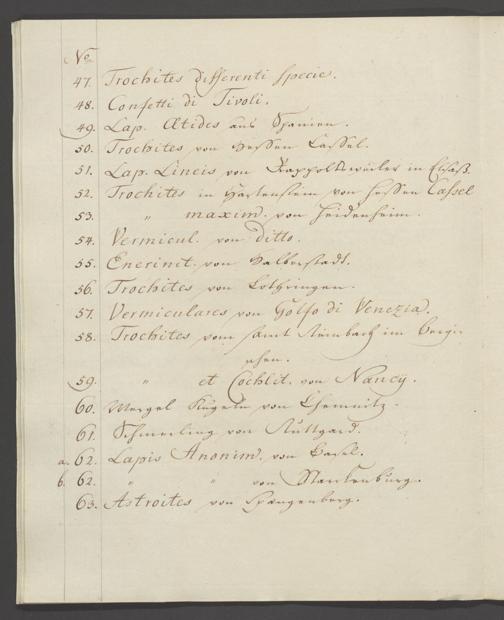 No
47. Trochites differenti specie.
48. Confetti di Tivoli.
49. Lap. Ætides aus Spanien.
50. Trochites von Hessen Cassel.
51. Lap. Lincis von Rappoltsweiler in Elsaß.
52. Trochites in Hartenstein von Hessen Cassel
53. " maxim. von Heidenheim.
54. Vermicul. von ditto.
55. Encrinit. von Halberstadt.
56. Trochites von Lothringen.
57. Vermiculares von Golfo di Venezia.
58. Trochites vom Amt im
59. " et Cochlit. von Nancy.
60. Mergel Kugeln von Chemnitz.
61. von Stuttgard.
a. 62. Lapis Anonim. von Basel.
b. 62. " " von Blankenburg.
63. Astroites von Spangenberg.